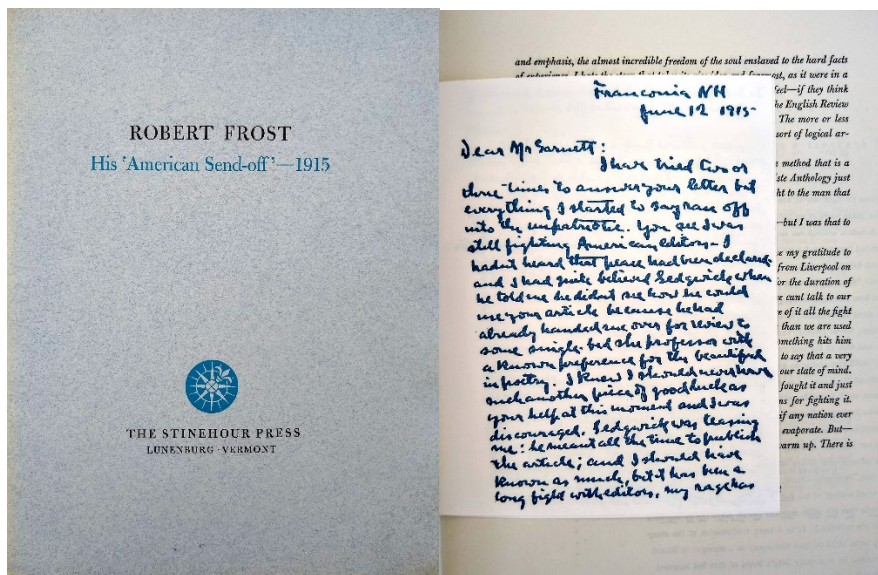 ROBERT FROST
His 'American Send-off'—1915
THE STINEHOUR PRESS
LUNENBURG · VERMONT
and emphasis, the almost incredible freedom of the soul enslaved to the hard facts
of experience. I hate the story that takes its rise idea end foremost, as it were in a
feel—if they think
he English Review
The more or less
sort of logical ar-
method that is a
ste Anthology just
ht to the man that
—but I was that to
my gratitude to
from Liverpool on
or the duration of
cant talk to our
of it all the fight
than we are used
mething hits him
to say that a very
our state of mind.
fought it and just
ns for fighting it.
if any nation ever
evaporate. But—
arm up. There is
Franconia NH
June 12 1915
Dear Mr Garnett:
I have tried two or
three times to answer your letter but
everything I started to say ran off
into the unpatriotic. You see I was
still fighting American editors. I
hadnt heard that peace had been declared
and I had quite believed Sedgwick when
he told me he didnt see how he could
use your article because he had
already handed me over for review to
some single-bed she professor with
a known preference for the beautiful
in poetry. I knew I should never have
such another piece of good luck as
your help at this moment and I was
discouraged. Sedgwick was teasing
me: he meant all the time to publish
the article; and I should have
known as much, but it has been a
long fight with editors, my rage has